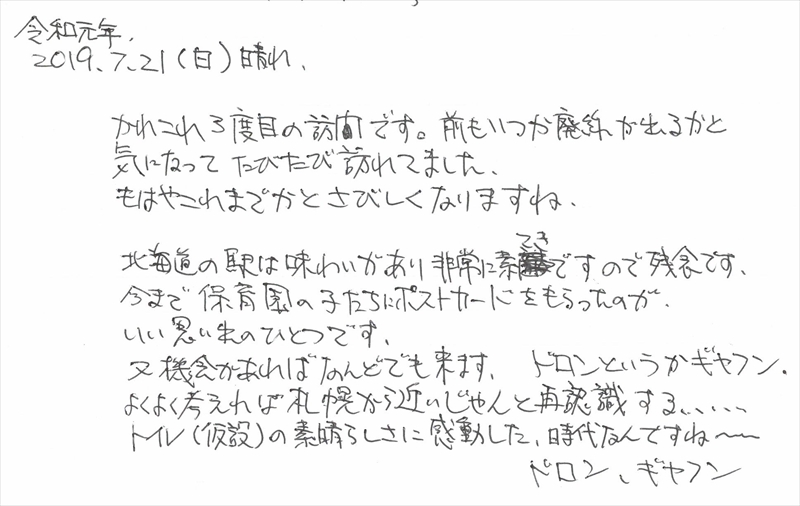 令和元年.
2019.7.21(日)晴れ.
かれこれ3度目の訪問です。前もいつか廃線が出るかと
気になって たびたび訪れてました.
もはやこれまでかとさびしくなりますね.
てき
北海道の駅は味わいがあり非常に素ですので残念です.
今まで保育園の子たちにポストカードをもらったのが.
いい思い出のひとつです.
又機会があればなんどでも来ます. ドロンというかギャフン.
よくよく考えれば札幌から近いじゃんと再認識する.....
トイレ(仮設)の素晴らしさに感動した.時代なんですね〜〜
ドロン、ギャフン